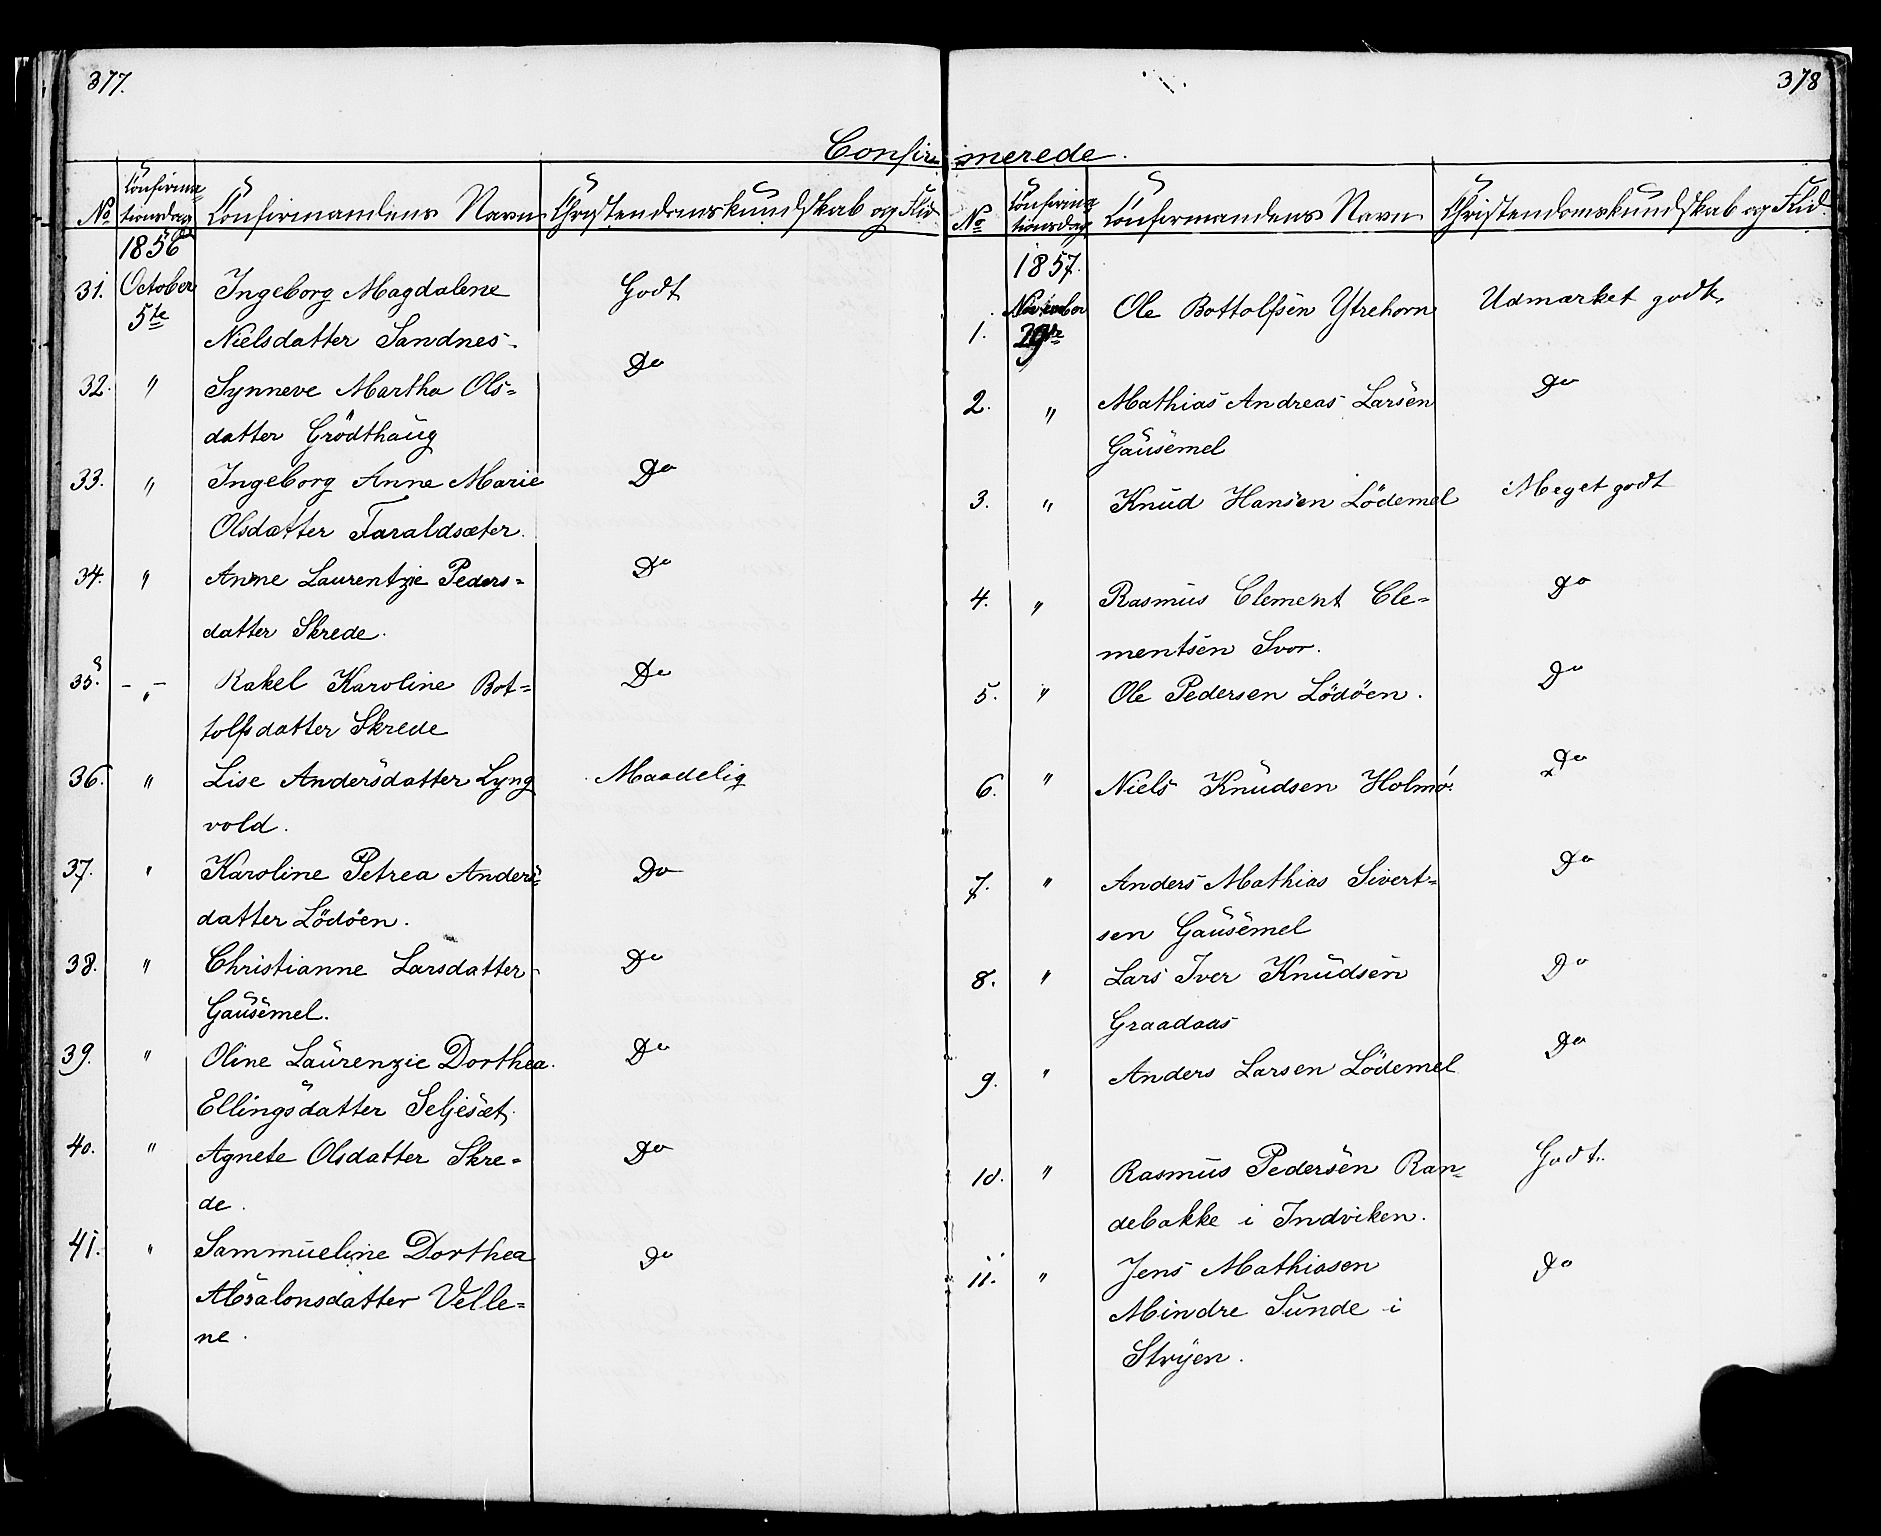 377.
Confir
Confirma-
No tionsdag Confirmandens Navn Christendomskundskab og Flid
1856
31. October Ingeborg Magdalene Godt
5te Nielsdatter Sandnes
32. " Synneve Martha Ols- Do
datter Grödthaug
33. " Ingeborg Anne Marie Do
Olsdatter Taraldsæter.
34. " Anne Laurentzie Peders- Do
datter Skrede.
35. - " - Rakel Karoline Bot- Do
tolfsdatter Skrede
36. " Lise Andersdatter Lyng Maadelig
vold.
37. " Karoline Petrea Anders- Do
datter Lödöen.
38. " Christianne Larsdatter Do
Gausemel.
39. " Oline Laurenzie Dorthea Do
Ellingsdatter Seljesæt.
40. " Agnete Olsdatter Skre- Do
de.
41. " Sammueline Dorthea Do
Absalonsdatter Velle-
ne.
378
merede.
Confirma
No tionsdag Confirmandens Navn Christendomskundskab og Flid.
1857.
November Ole Bottolfsen Ytrehorn Udmærket godt.
1.
2. " Mathias Andreas Larsen Do
Gausemel
3. " Knud Hansen Lödemel Meget godt
4. " Rasmus Clement Cle- Do
mentsen Svor.
5. " Ole Pedersen Lödöen. Do
6. " Niels Knudsen Holmö. Do
7. " Anders Mathias Sivert- Do
sen Gausemel
8. " Lars Iver Knudsen Do
Graadaas
9. " Anders Larsen Lödemel Do
10. " Rasmus Pedersen Ran- Godt.
debakke i Indviken.
11. " Jens Mathiasen Do
Mindre Sunde i
Stryen.